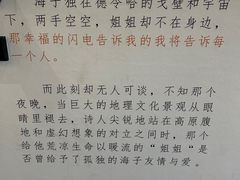 海子独在德令哈的戈壁和宇宙
下，两手空空，姐姐却不在身边，
那幸福的闪电告诉我的我将告诉每
一个人。
而此刻却无人可谈，不知那个
夜晚，当巨大的地理文化景观从眼
睛里褪去，诗人尖锐地站在高原腹
地和虚幻想象的对立之间时，那个
给他荒凉生命以暖流的“姐姐”是
否曾给予了孤独的海子友情与爱。